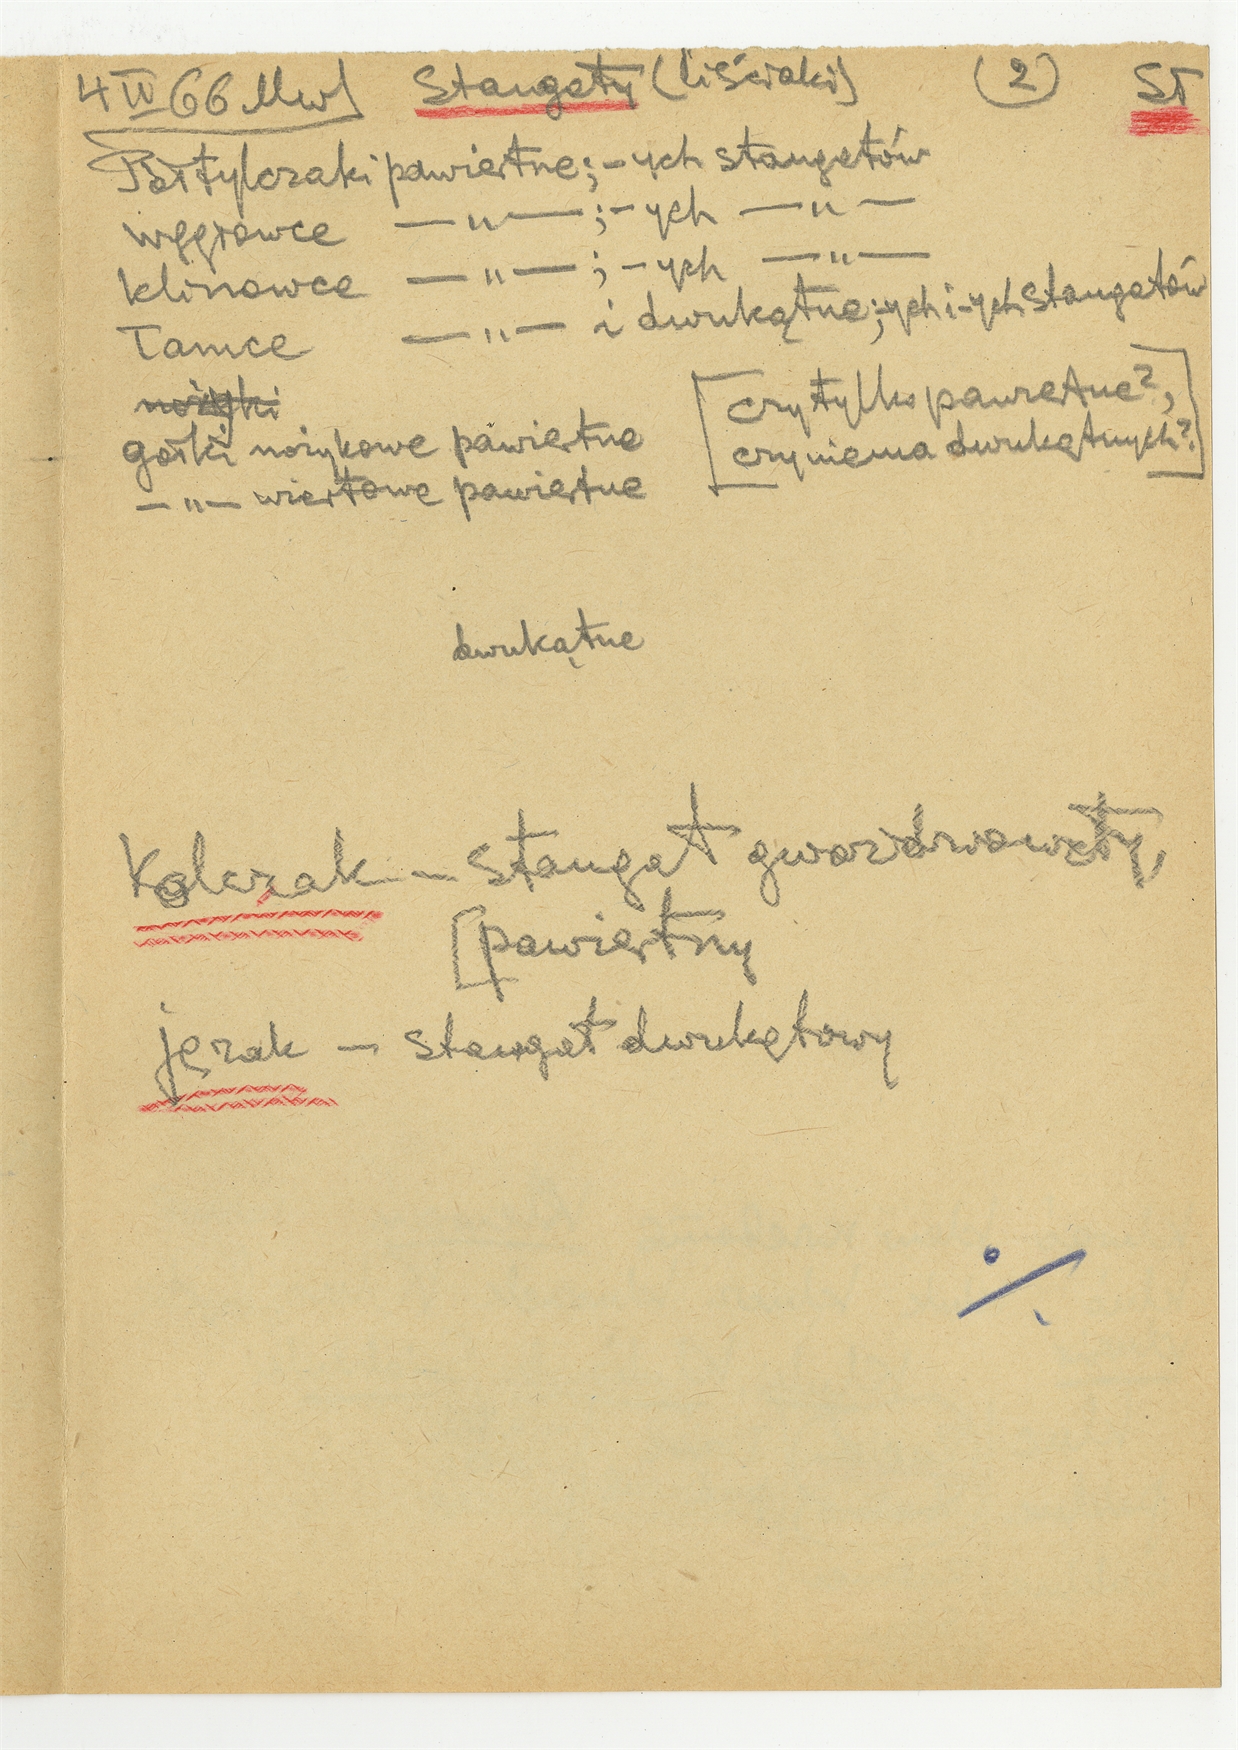 4 IV 66 Mw
Stangaty (liściaki) (2) ST
Półtylczaki pawiertne; -ych stangatów
węgłowce —„— ; -ych —„—
klinowce —„— ; -ych —„—
Łamce —„— i dwukątne; -ych i -ych stangatów
nożyki
górki nożykowe pawiertne
—„— wiertowe pawiertne
[czy tylko pawiertne?,
czy nie ma dwukątnych?]
dwukątne
Kolczak — stangat gwoździowaty,
[pawiertny
jęzak — stangat dwukątowy
./.